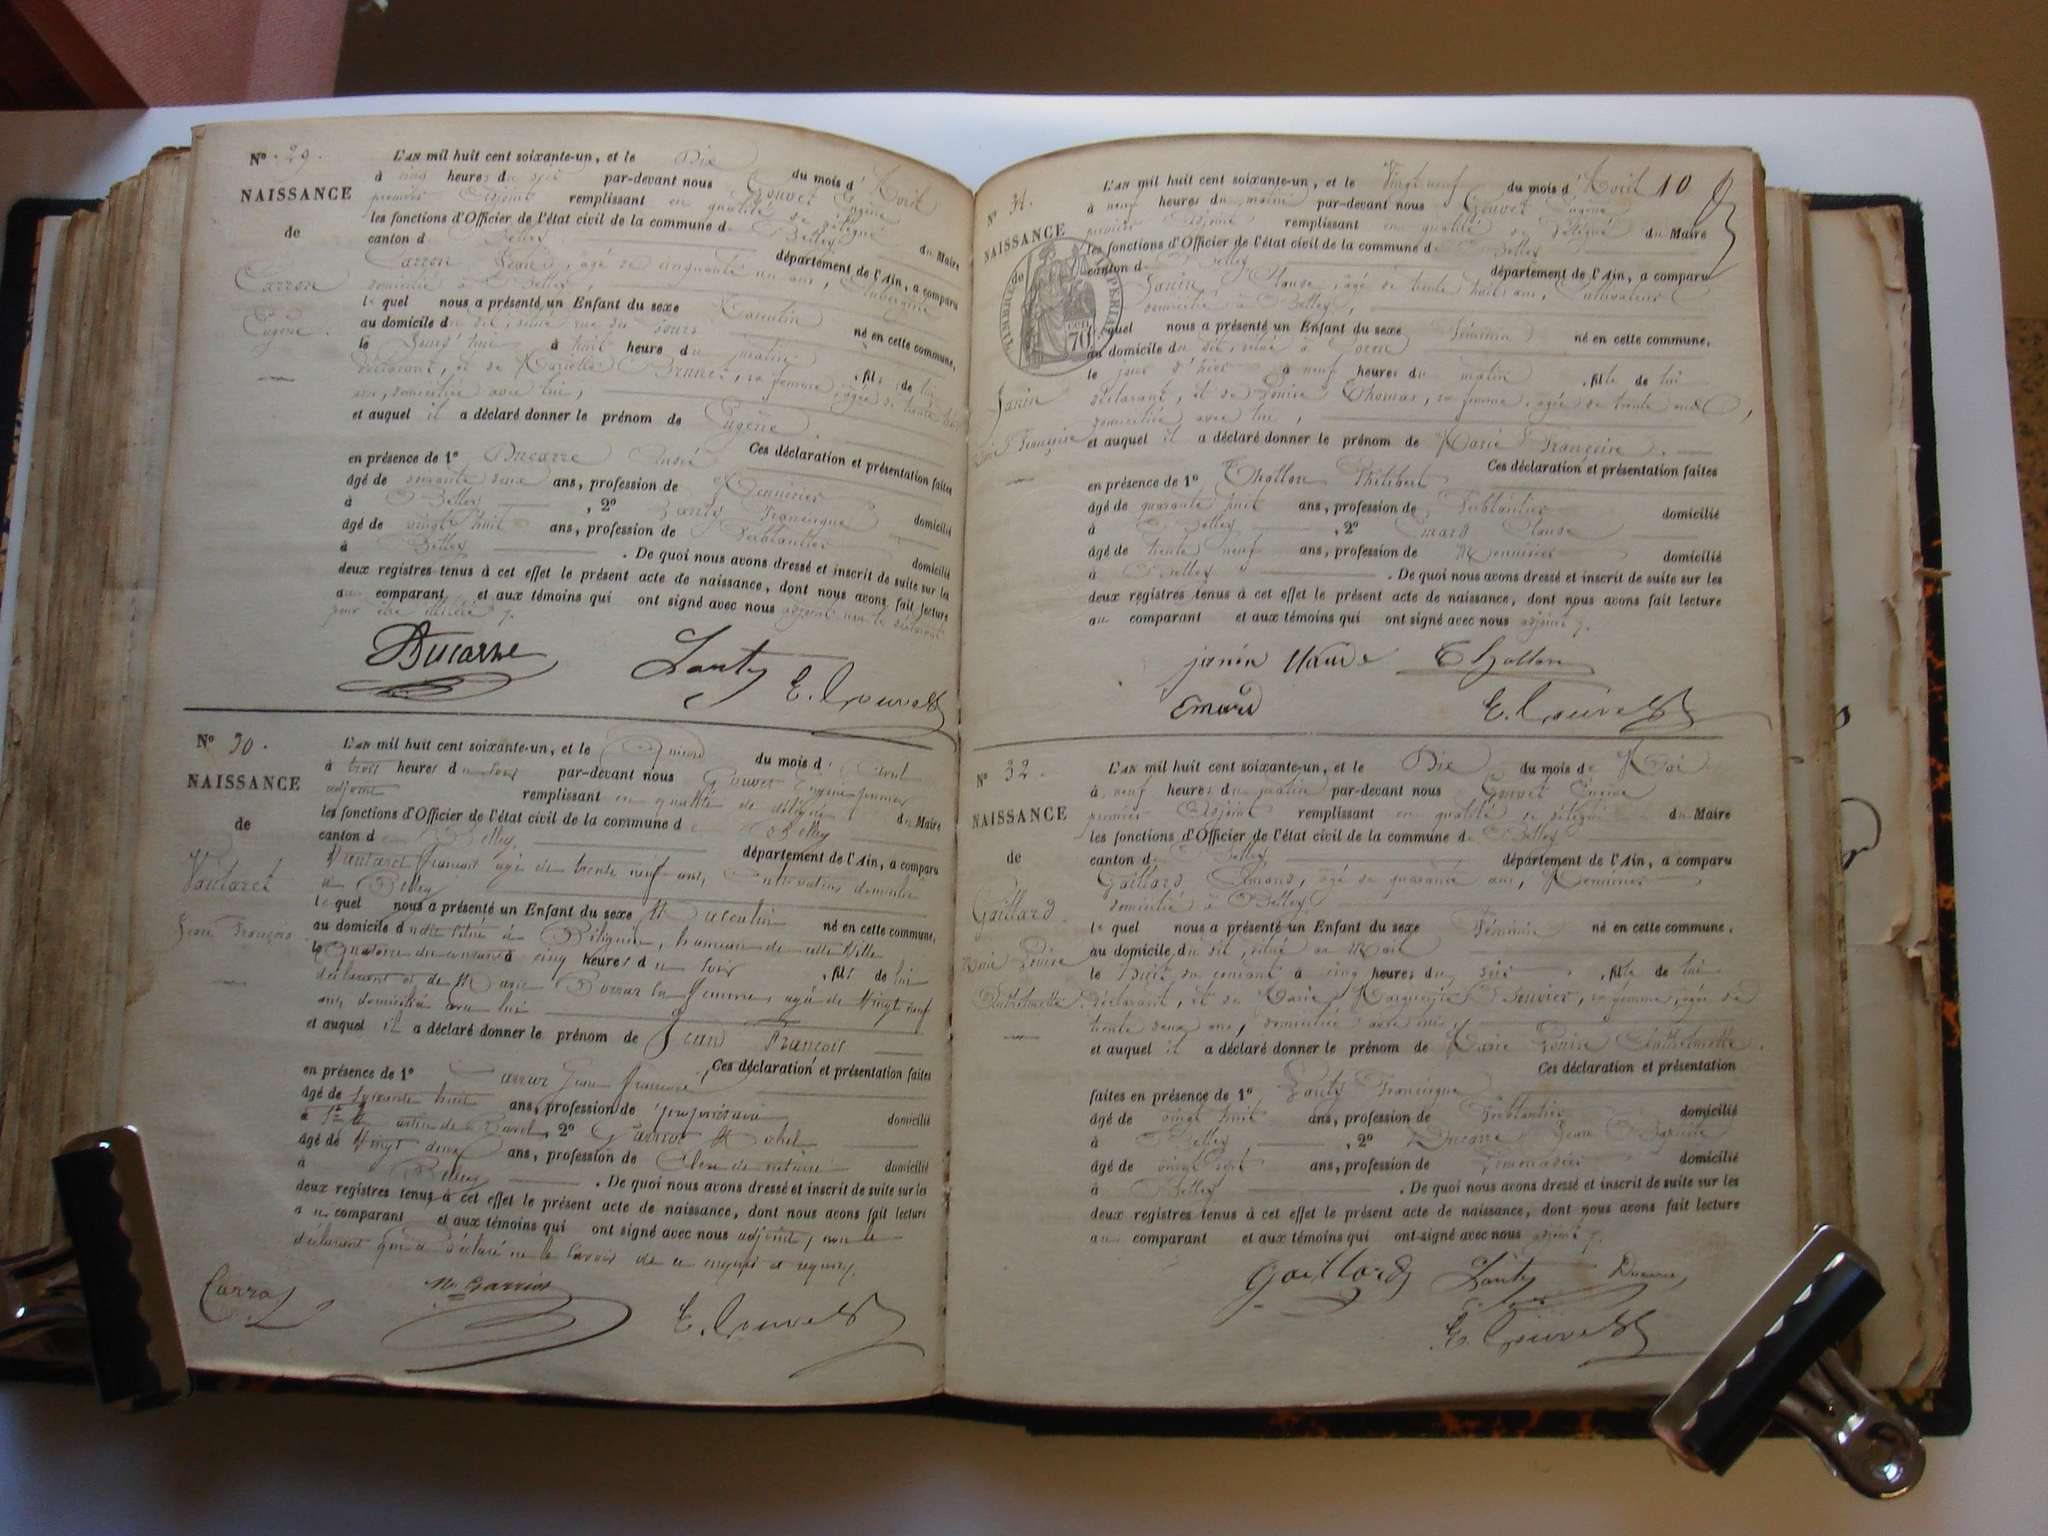 N° 29.
NAISSANCE
de
Carron
Eugène.
L'AN mil huit cent soixante-un, et le Dix du mois d'Avril
à cinq heures du soir par-devant nous Gouvet Eugène
premier Adjoint remplissant en qualité de délégué du Maire
les fonctions d'Officier de l'état civil de la commune de Belley
canton de Belley département de l'Ain, a comparu
Carron, âgé de cinquante un ans, Aubergiste
domicilié à Belley,
lequel nous a présenté un Enfant du sexe Masculin né en cette commune,
au domicile du dit, situé rue du
le jour d'hui à huit heures du matin, fils de lui
déclarant, et de Mariette Brunet, sa femme, âgée de trente
ans, domiciliée avec lui,
et auquel il a déclaré donner le prénom de Eugène.
Ces déclaration et présentation faites
en présence de 1° Ducarre André
âgé de soixante deux ans, profession de Menuisier domicilié
à Belley, 2° Lanty Francisque
âgé de vingt huit ans, profession de Ferblantier domicilié
à Belley. De quoi nous avons dressé et inscrit de suite sur les
deux registres tenus à cet effet le présent acte de naissance, dont nous avons fait lecture
au comparant et aux témoins qui ont signé avec nous adjoint non le déclarant
pour être illitéré
Ducarre Lanty E. Gouvet
N° 30.
NAISSANCE
de
Vautaret
Jean François
L'AN mil huit cent soixante-un, et le Quinze du mois d'Avril
à trois heures du soir par-devant nous Gouvet Eugène premier
adjoint remplissant en qualité de délégué du Maire
les fonctions d'Officier de l'état civil de la commune de Belley
canton de Belley, département de l'Ain, a comparu
Vautaret François agé de trente neuf ans, Cultivateur domicilié
à Belley
lequel nous a présenté un Enfant du sexe Masculin né en cette commune,
au domicile dudit situé à Billignin, hameau de cette Ville
le Quatorze du courant à cinq heures du soir, fils de lui
déclarant et de Marie Carraz sa femme, agée de Vingt neuf
ans, domiciliée avec lui
et auquel il a déclaré donner le prénom de Jean François
Ces déclaration et présentation faites
en présence de 1° Carraz Jean François
âgé de Soixante huit ans, profession de propriétaire domicilié
à St Martin de Bavel, 2° Garriot Michel
âgé de Vingt deux ans, profession de Clerc de notaire domicilié
à Belley. De quoi nous avons dressé et inscrit de suite sur les
deux registres tenus à cet effet le présent acte de naissance, dont nous avons fait lecture
au comparant et aux témoins qui ont signé avec nous adjoint, non le
déclarant qui a déclaré ne le savoir de ce enquis et requis.
Carraz M. Garriot E. Gouvet
10
N° 31.
NAISSANCE
de
TIMBRE IMPERIAL
70
Janin
Marie Françoise
L'AN mil huit cent soixante-un, et le Vingt neuf du mois d'Avril
à neuf heures du matin par-devant nous Gouvet Eugène
premier Adjoint remplissant en qualité de délégué du Maire
les fonctions d'Officier de l'état civil de la commune de Belley
canton de Belley département de l'Ain, a comparu
Janin Claude, âgé de trente huit ans, Cultivateur
domicilié à Belley,
lequel nous a présenté un Enfant du sexe féminin né en cette commune,
au domicile du dit, situé à
le jour d'hier à neuf heures du matin, fille de lui
déclarant, et de Louise Thomas, sa femme, agée de trente ans,
domiciliée avec lui,
et auquel il a déclaré donner le prénom de Marie Françoise.
Ces déclaration et présentation faites
en présence de 1° Thollon Philibert
âgé de quarante huit ans, profession de Ferblantier domicilié
à Belley, 2° Emard Claude
âgé de trente neuf ans, profession de Menuisier domicilié
à Belley. De quoi nous avons dressé et inscrit de suite sur les
deux registres tenus à cet effet le présent acte de naissance, dont nous avons fait lecture
au comparant et aux témoins qui ont signé avec nous adjoint
janin Claude Thollon
Emard E. Gouvet
N° 32.
NAISSANCE
de
Gaillard
Marie Louise
Anthelmette.
L'AN mil huit cent soixante-un, et le Dix du mois de Mai
à neuf heures du matin par-devant nous Gouvet Eugène
premier Adjoint remplissant en qualité de délégué du Maire
les fonctions d'Officier de l'état civil de la commune de Belley
canton de Belley département de l'Ain, a comparu
Gaillard Amand, âgé de quarante ans, Menuisier
domicilié à Belley
lequel nous a présenté un Enfant du sexe féminin né en cette commune,
au domicile du dit, situé au Mail
le huit du courant à cinq heures du soir, fille de lui
déclarant, et de Marie Marguerite Bouvier, sa femme, agée de
trente deux ans, domiciliée avec lui,
et auquel il a déclaré donner le prénom de Marie Louise Anthelmette.
Ces déclaration et présentation
faites en présence de 1° Lanty Francisque
âgé de vingt huit ans, profession de Ferblantier domicilié
à Belley, 2° Ducarre Jean
âgé de vingt sept ans, profession de Limonadier domicilié
à Belley. De quoi nous avons dressé et inscrit de suite sur les
deux registres tenus à cet effet le présent acte de naissance, dont nous avons fait lecture
au comparant et aux témoins qui ont signé avec nous adjoint
Gaillard Lanty Ducarre
E. Gouvet